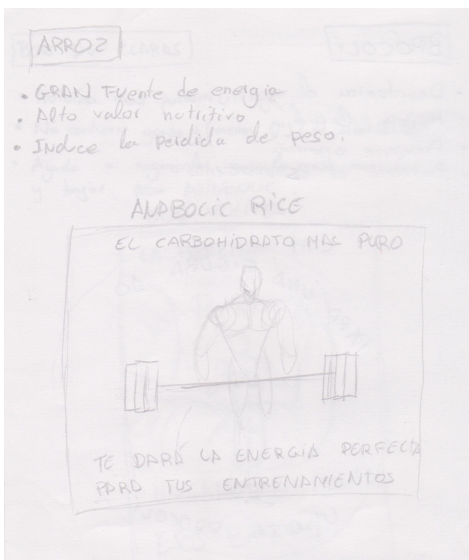 ARROZ
• GRAN Fuente de energia
• Alto valor nutritivo
• Induce la perdida de peso.
ANABOLIC RICE
EL CARBOHIDRATO MAS PURO
TE DARÁ LA ENERGIA PERFECTA
PARA TUS ENTRENAMIENTOS